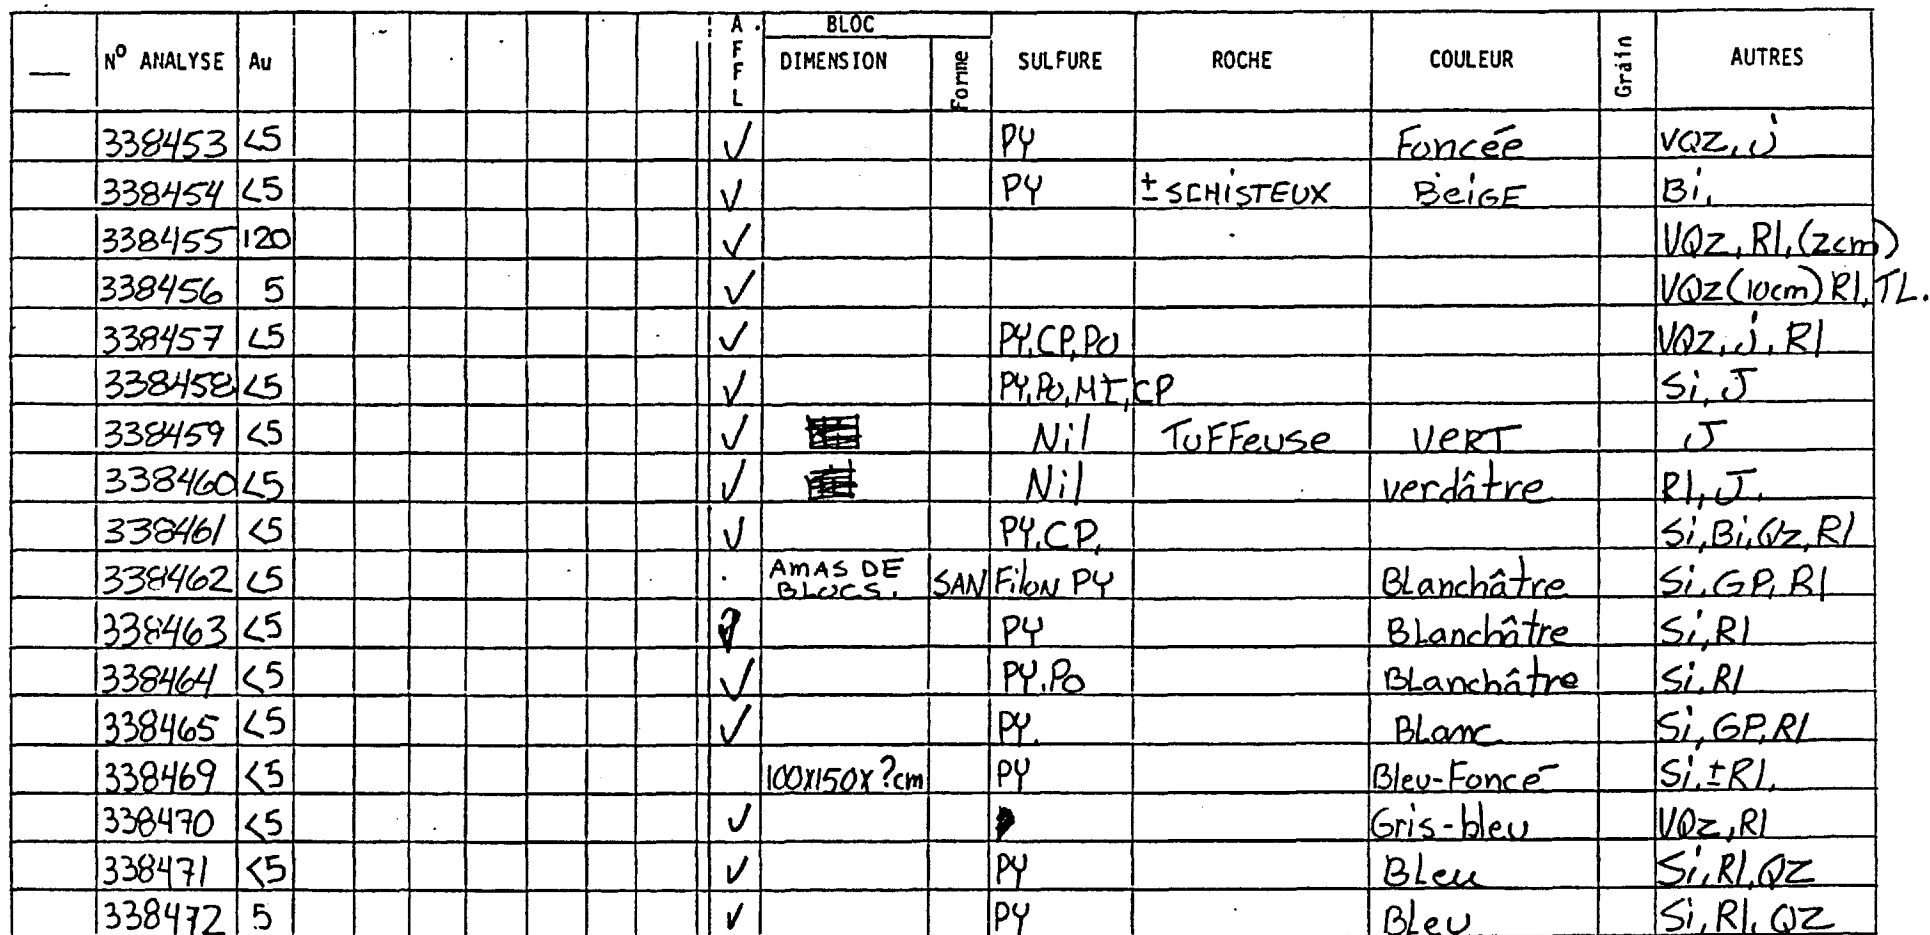 A F F L BLOC
N° ANALYSE Au DIMENSION Forme SULFURE ROCHE COULEUR Grain AUTRES
338453 <5 ✓ PY Foncée VQZ, j
338454 <5 ✓ PY ± SCHISTEUX BeiGE Bi,
338455 120 ✓ VQZ, Rl, (2cm)
338456 5 ✓ VQZ (10cm) Rl, TL.
338457 <5 ✓ PY, CP, Po VQZ, j, Rl
338458 <5 ✓ PY, Po, MT, CP Si, J
338459 <5 ✓ Nil TuFFeuse VERT J
338460 <5 ✓ Nil verdâtre Rl, J.
338461 <5 ✓ PY, CP, Si, Bi, Qz, Rl
338462 <5 AMAS DE BLOCS. SAN Filon PY Blanchâtre Si, GP, Rl
338463 <5 PY BLanchâtre Si, Rl
338464 <5 ✓ PY, Po BLanchâtre Si, Rl
338465 <5 ✓ PY. BLanc Si, GP, Rl
338469 <5 100x150x?cm PY Bleu-Foncé Si, ±Rl.
338470 <5 ✓ Gris-bleu VQz, Rl
338471 <5 ✓ PY BLeu Si, Rl, QZ
338472 5 ✓ PY BLeu Si, Rl, QZ